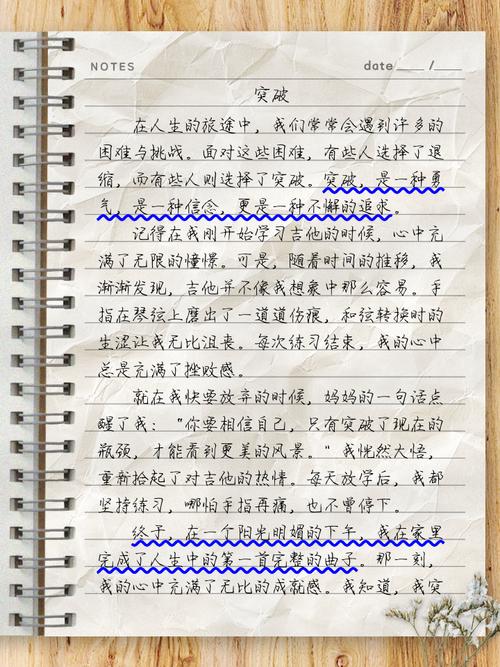 NOTES date____ /____
突破
在人生的旅途中，我们常常会遇到许多的
困难与挑战。面对这些困难，有些人选择了退
缩，而有些人则选择了突破。突破，是一种勇
气，是一种信念，更是一种不懈的追求。
记得在我刚开始学习吉他的时候，心中充
满了无限的憧憬。可是，随着时间的推移，我
渐渐发现，吉他并不像我想象中那么容易。手
指在琴弦上磨出了一道道伤痕，和弦转换时的
生涩让我无比沮丧。每次练习结束，我的心中
总是充满了挫败感。
就在我快要放弃的时候，妈妈的一句话点
醒了我：“你要相信自己，只有突破了现在的
瓶颈，才能看到更美的风景。”我恍然大悟，
重新拾起了对吉他的热情。每天放学后，我都
坚持练习，哪怕手指再痛，也不曾停下。
终于，在一个阳光明媚的下午，我在家里
完成了人生中的第一首完整的曲子。那一刻，
我的心中充满了无比的成就感。我知道，我突